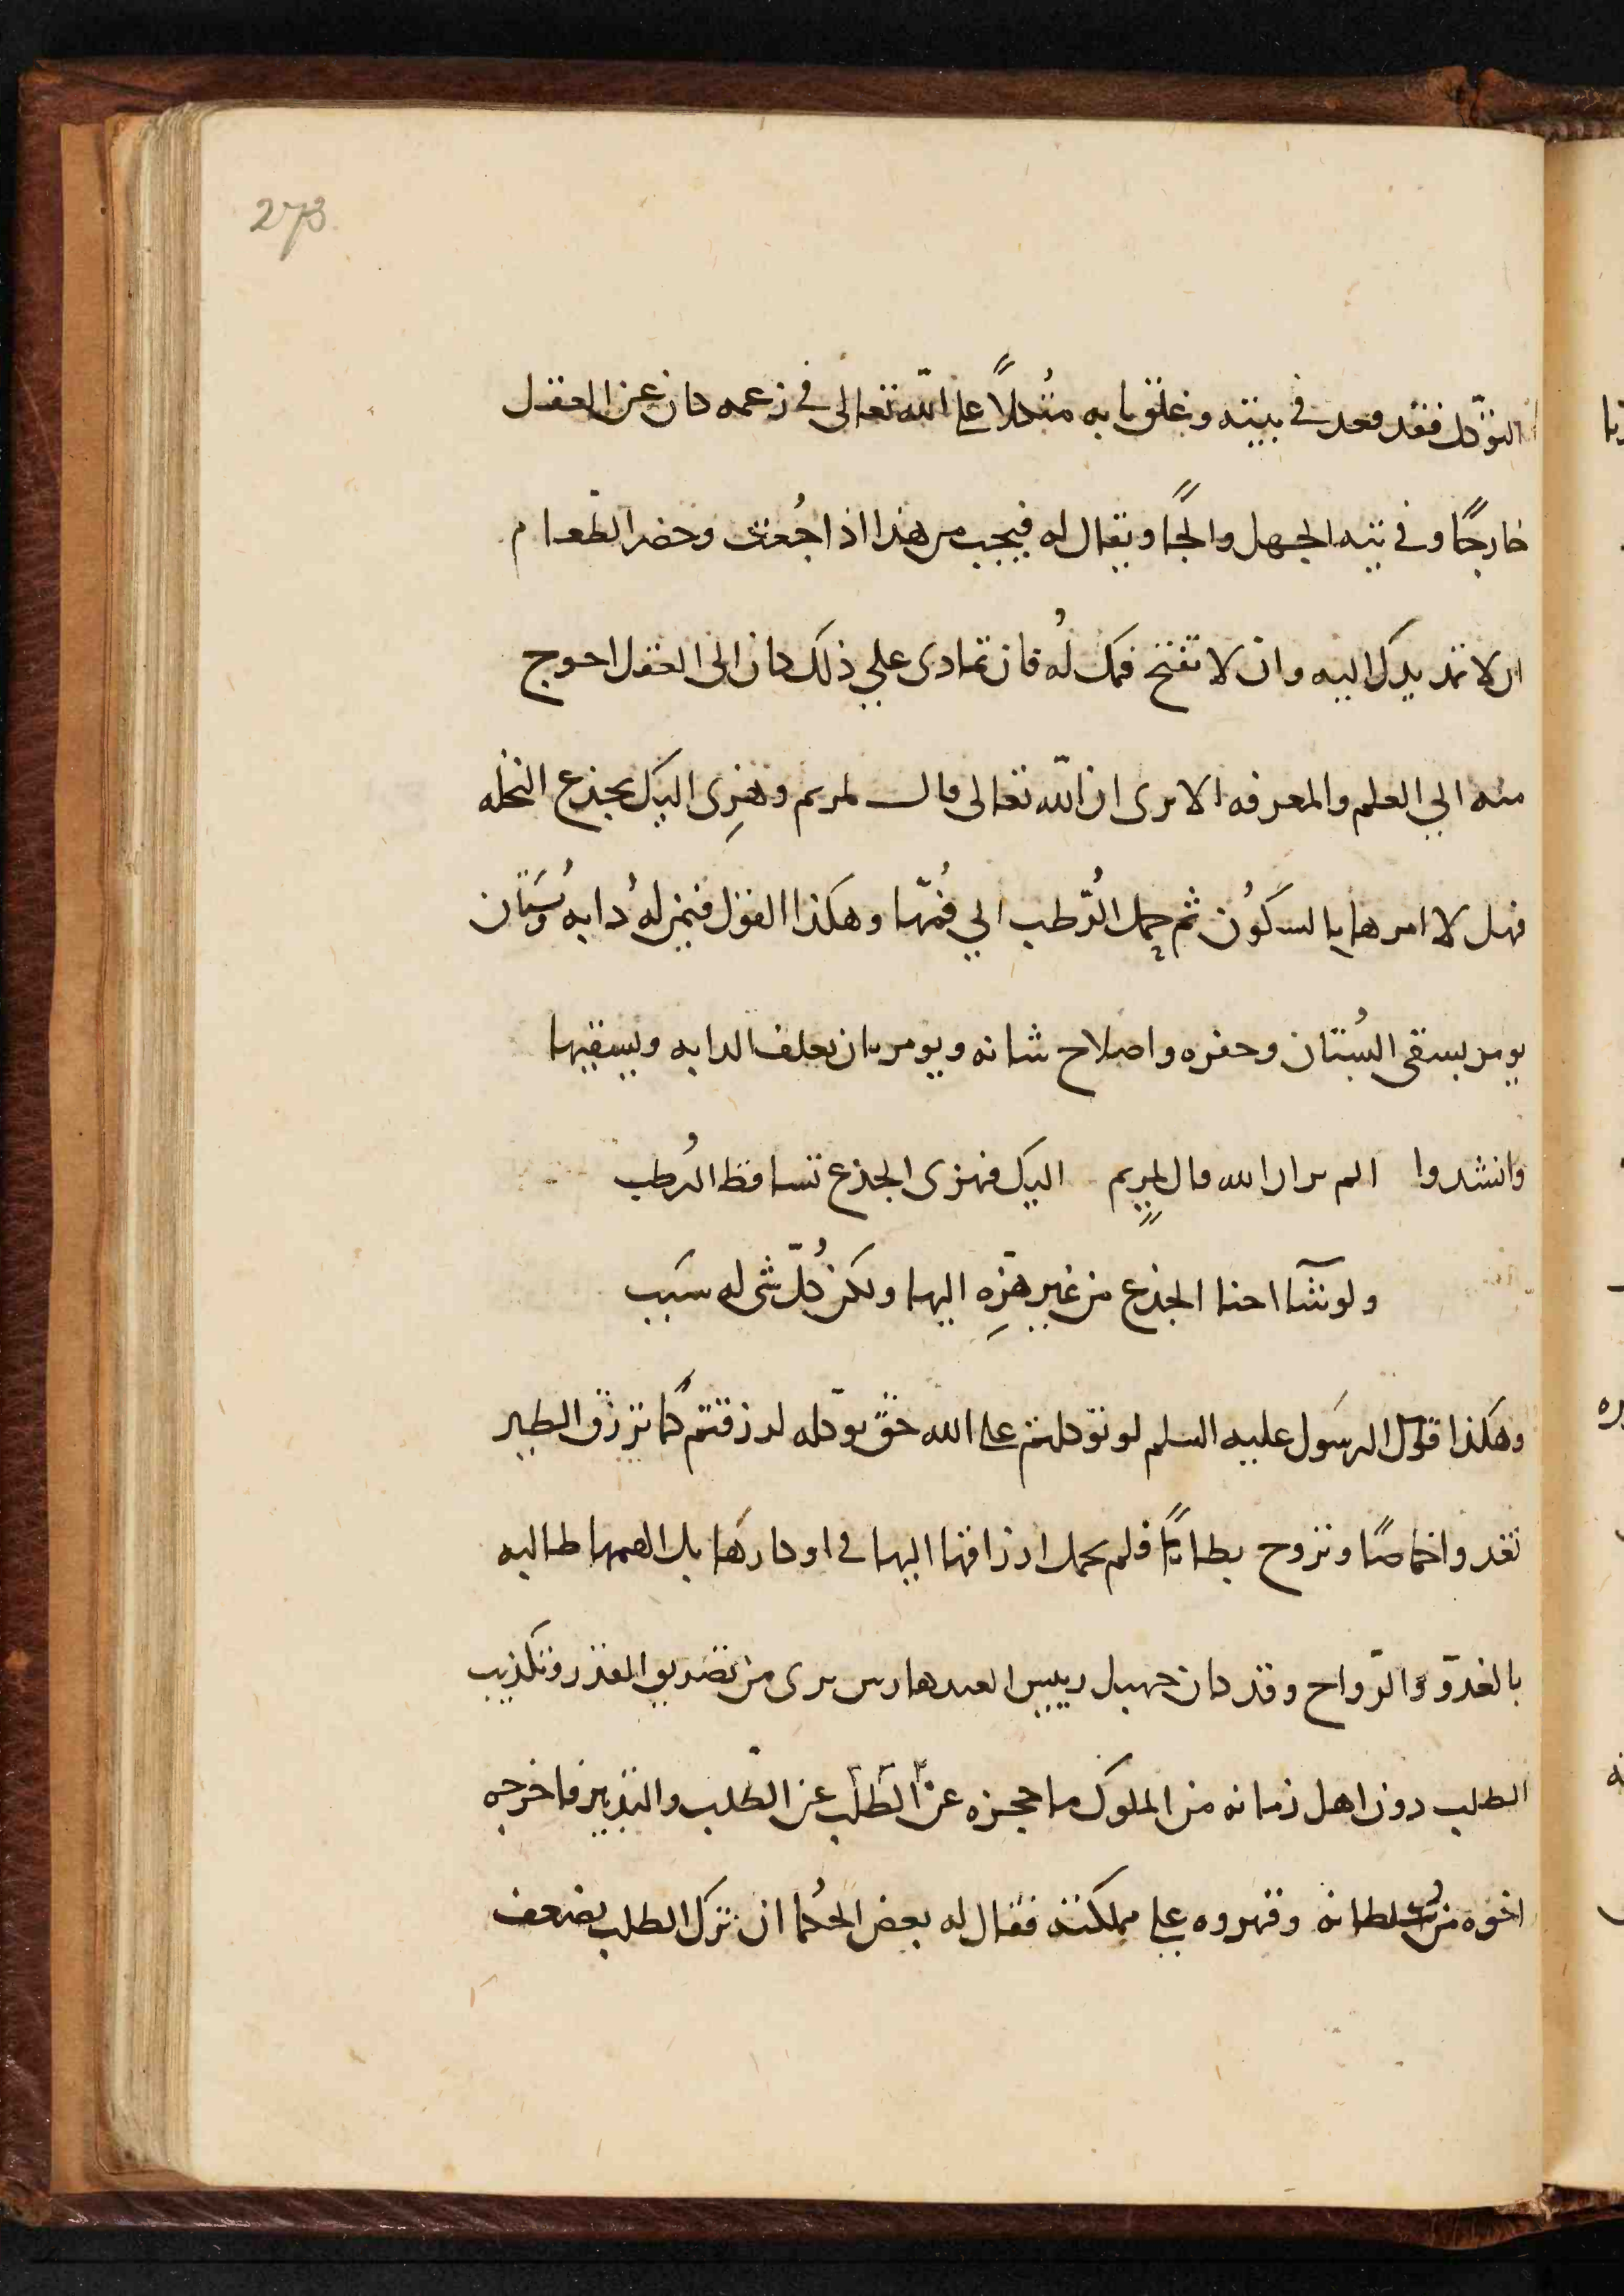 273
التوّكل فقد قعد في بيته وغلق بابه متّكلاً على اللّه تعالى في زعمه كان عن العقل
خارجًا وفي تيه الجهل والجًا ويقال له فيجب من هذا اذا جُعت وحضر الطّعام
ان لا تمد يدك اليه وان لا تفتح فمك لُه فان تمادى على ذلك كان الى العقل احوج
منه الي العلم والمعرفه الا ترى ان اللّه تعالى قال لمريم وهزِى اليك بجذع النخله
فهل لا امرها بالسكُون ثم حمل الرُّطب الي فُمّها وهكذا القول فيمن له دابه وبُستان
يومر بسقى البُستان وحفره واصلاح شانه ويومر بان يعلف الدابه ويسقيها
وانشدوا الم تر ان الله قال لمريمٍ اليك فهزى الجذع تساقط الرُطب
ولو شآ احنا الجذع من غير هزّهِ اليها ولكن كُلّ شى له سبب
وهكذا قول الرسول عليه السلم لو توّكلتم على الله حقّ توّكله لرزقتم كما ترزق الطير
تغدوا خماصًا وتروح بطانًا فلم يحمل ارزاقها اليها في اوكارها بل الهمها طالبه
بالغدوّ والرّواح وقد كان رييس ممن يرى من تصديق القدر وتكذيب
الطلب دون اهل زمانه من الملوك ما حجزه عن الطّلب عن الطّلب والتدبير فاخرجه
اخوه من سُلطانه وقهروه على مملكته فقال له بعض الحُكما ان ترك الطلب يضعف